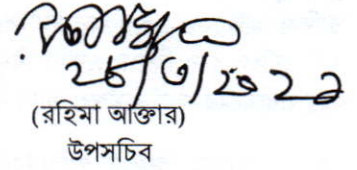 ২৮/৩/২০২১
(রহিমা আক্তার)
উপসচিব